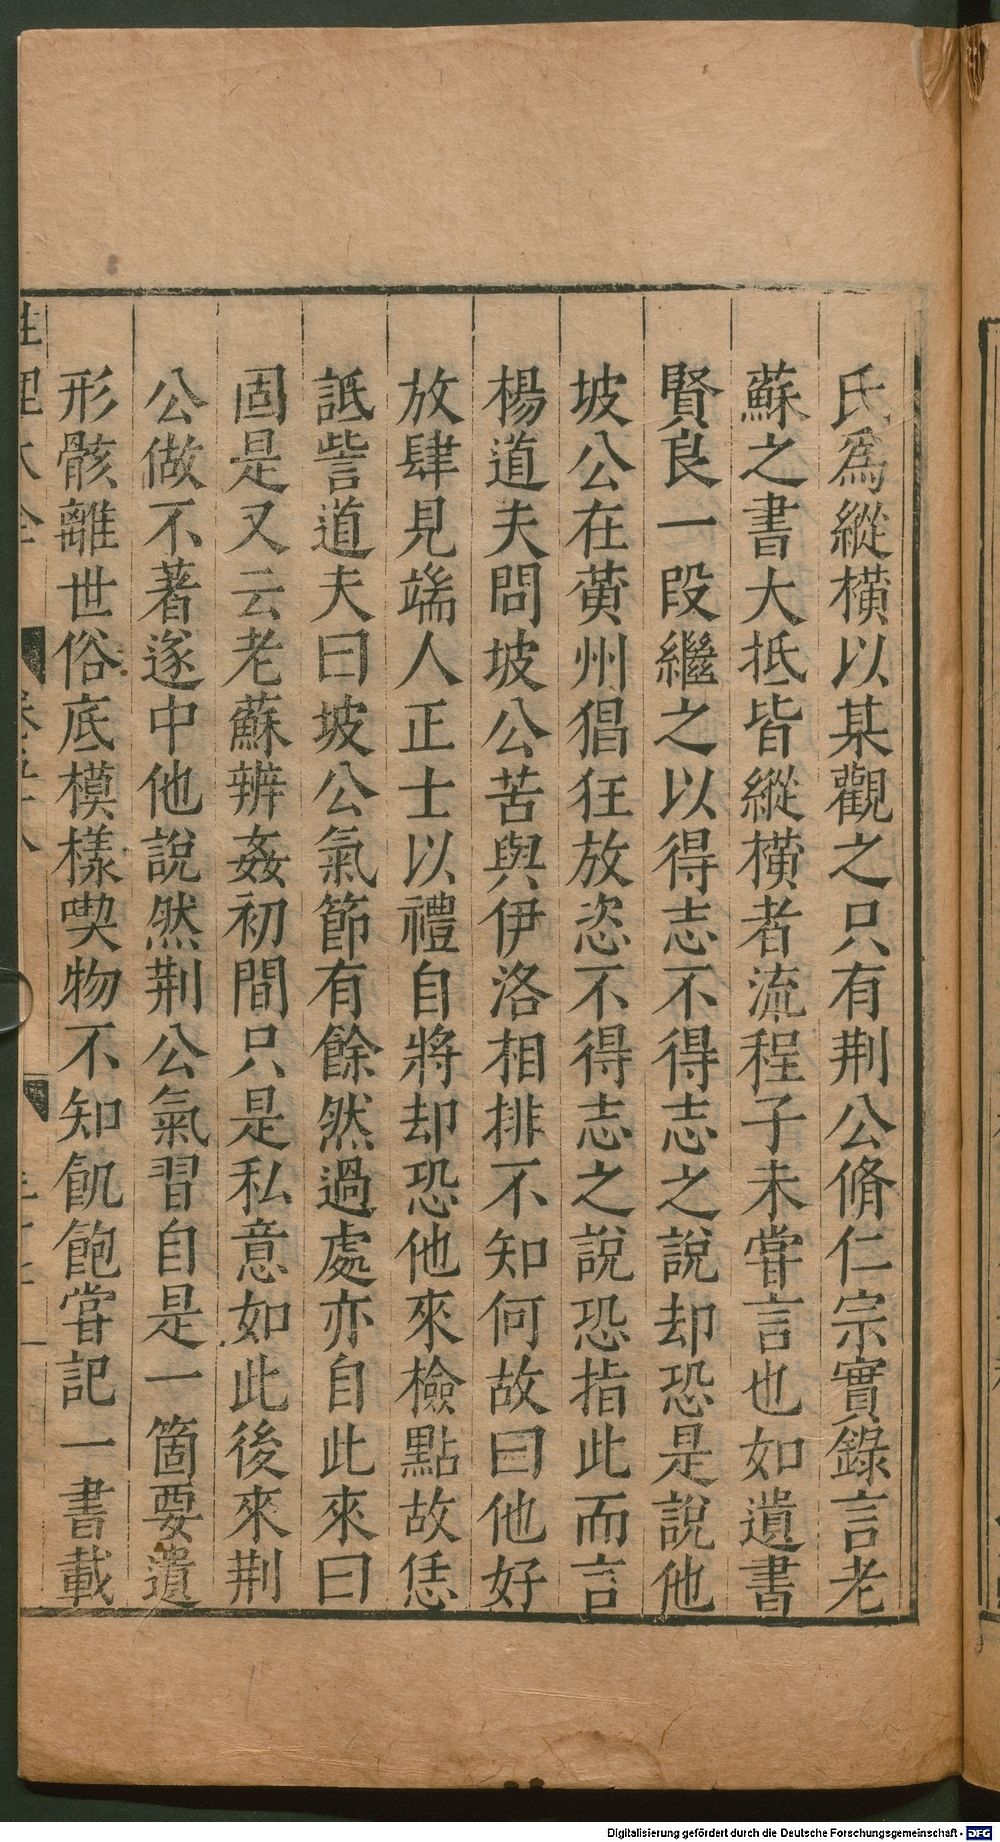 氏爲縱橫以某觀之只有荆公脩仁宗實錄言老
蘇之書大抵皆縱橫者流程子未甞言也如遺書
賢良一段繼之以得志不得志之說却恐是說他
坡公在黄州猖狂放恣不得志之說恐指此而言
楊道夫問坡公苦與伊洛相排不知何故曰他好
放肆見端人正士以禮自將却恐他來檢點故恁
詆訾道夫曰坡公氣節有餘然過處亦自此來曰
固是又云老蘇辨姦初間只是私意如此後來荆
公做不著遂中他說然荆公氣習自是一箇要遺
形骸離世俗底模樣喫物不知飢飽甞記一書載
Digitalisierung gefördert durch die Deutsche Forschungsgemeinschaft - DFG